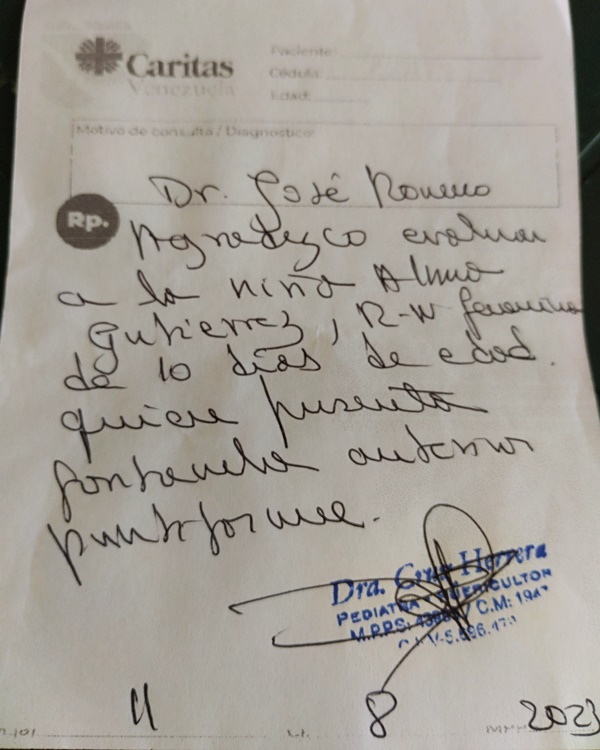 Caritas
Venezuela
Paciente:
Cédula:
Edad:
Motivo de consulta / Diagnostico:
Rp.
Dr. José Romero
Agradezco evaluar
a la niña Alma
Gutierrez, R-N femenino
de 10 días de edad.
quien presenta
fontanela anterior
puntiforme.
Dra. Cruz Herrera
PEDIATRA PUERICULTOR
M.P.P.S: C.M:
11 8 2023